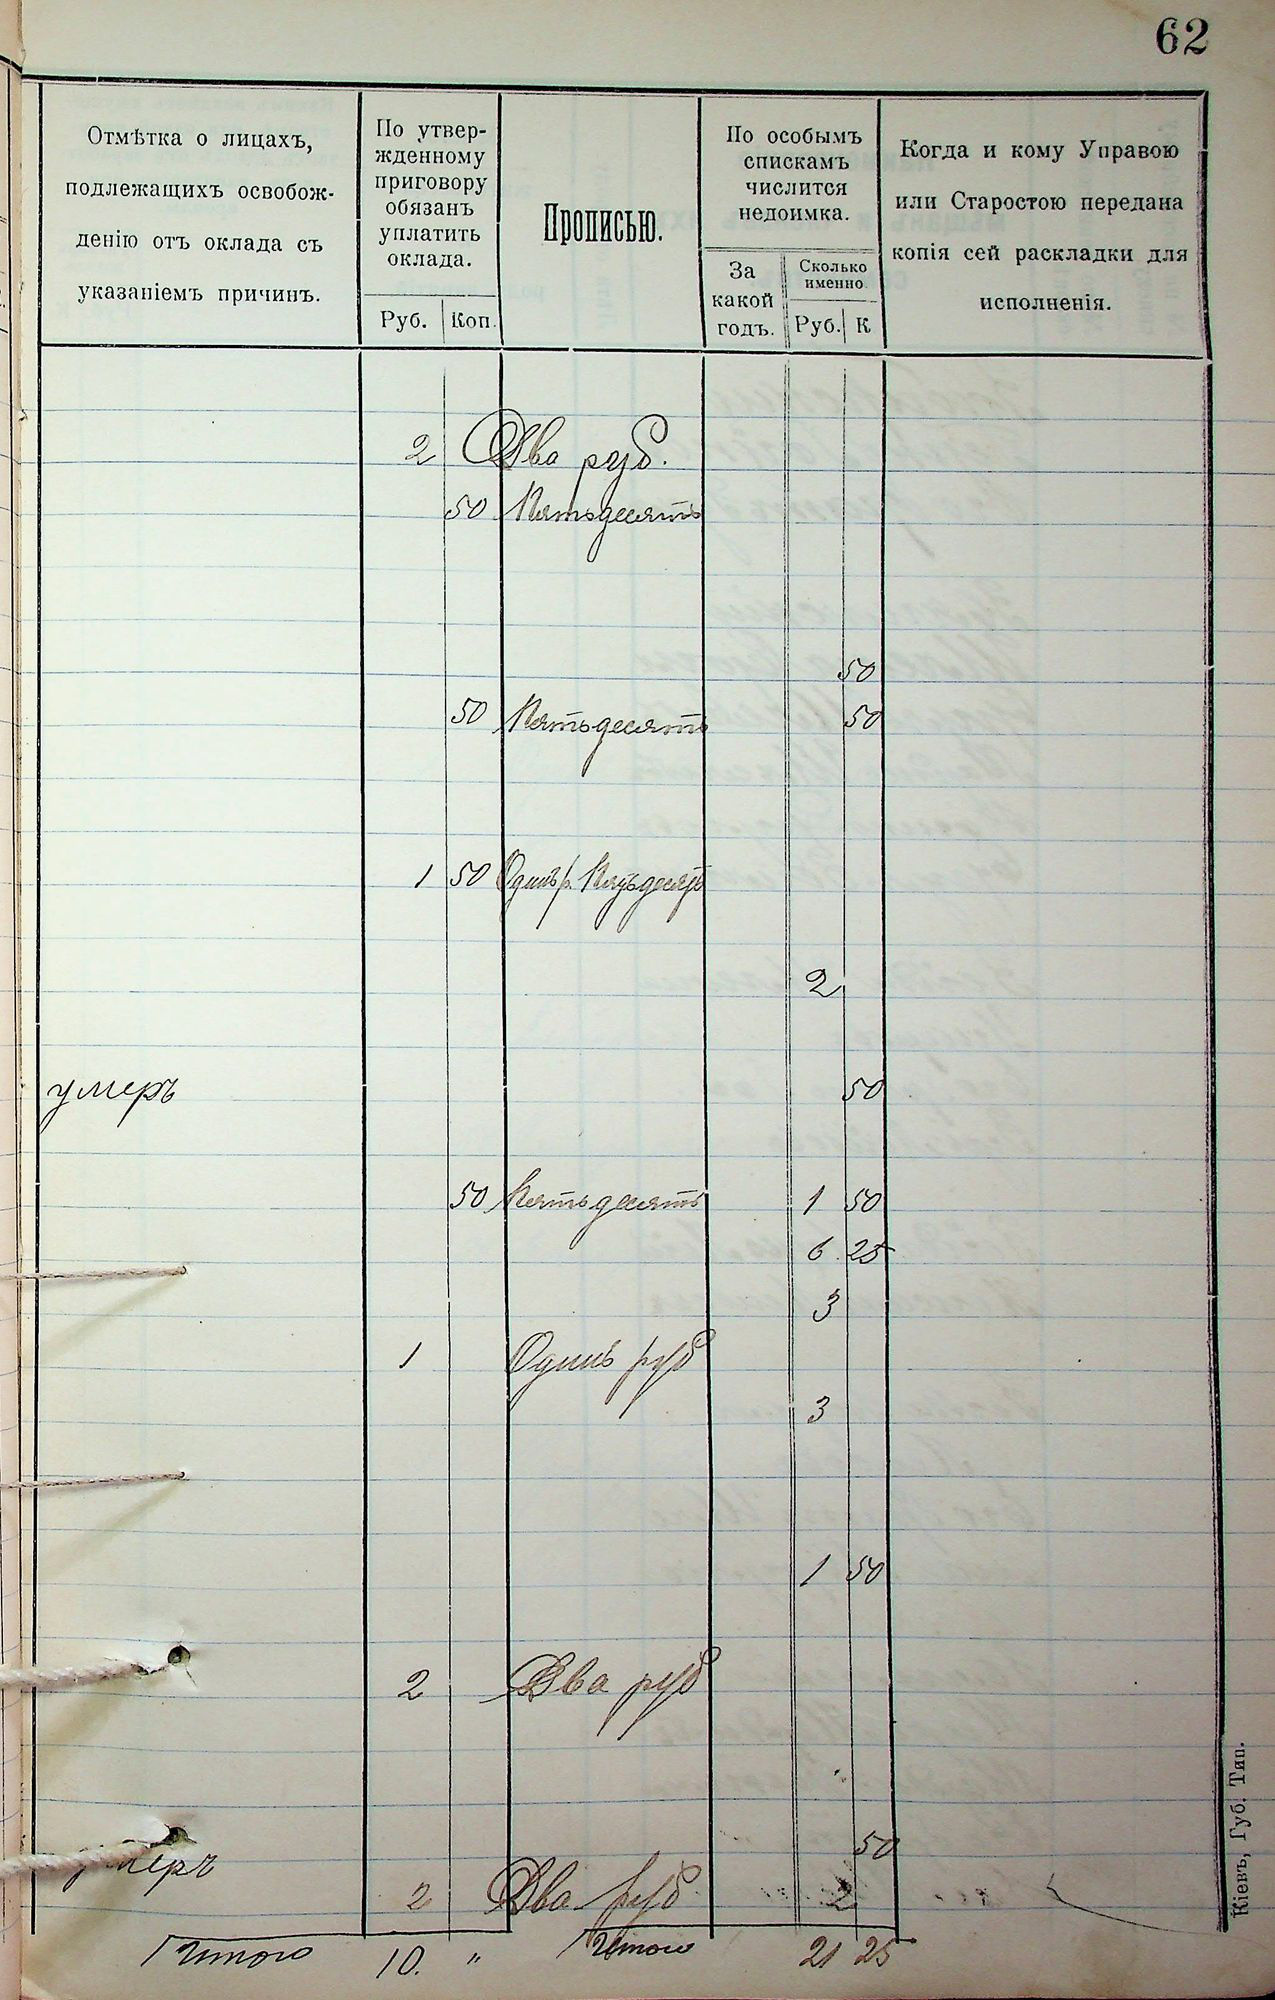 62
Отмѣтка о лицахъ,
подлежащихъ освобож-
денію отъ оклада съ
указаніемъ причинъ.
По утвер-
жденному
приговору
обязанъ
уплатить
оклада.
Руб. Коп.
Прописью.
По особымъ
спискамъ
числится
недоимка.
За
какой
годъ.
Сколько
именно
Руб. К
Когда и кому Управою
или Старостою передана
копія сей раскладки для
исполненія.
2 Два руб.
50 Пятьдесятъ
50
50 Пятьдесятъ 50
1 50 Одинъ р. Пятьдесятъ
2
умеръ 50
50 Пятьдесятъ 1 50
6 25
3
1 Одинъ руб
3
1 50
2 Два руб
умеръ 50
2 Два руб 2
Итого 10. " Итого 21 25
Кіевъ, Губ. Тип.